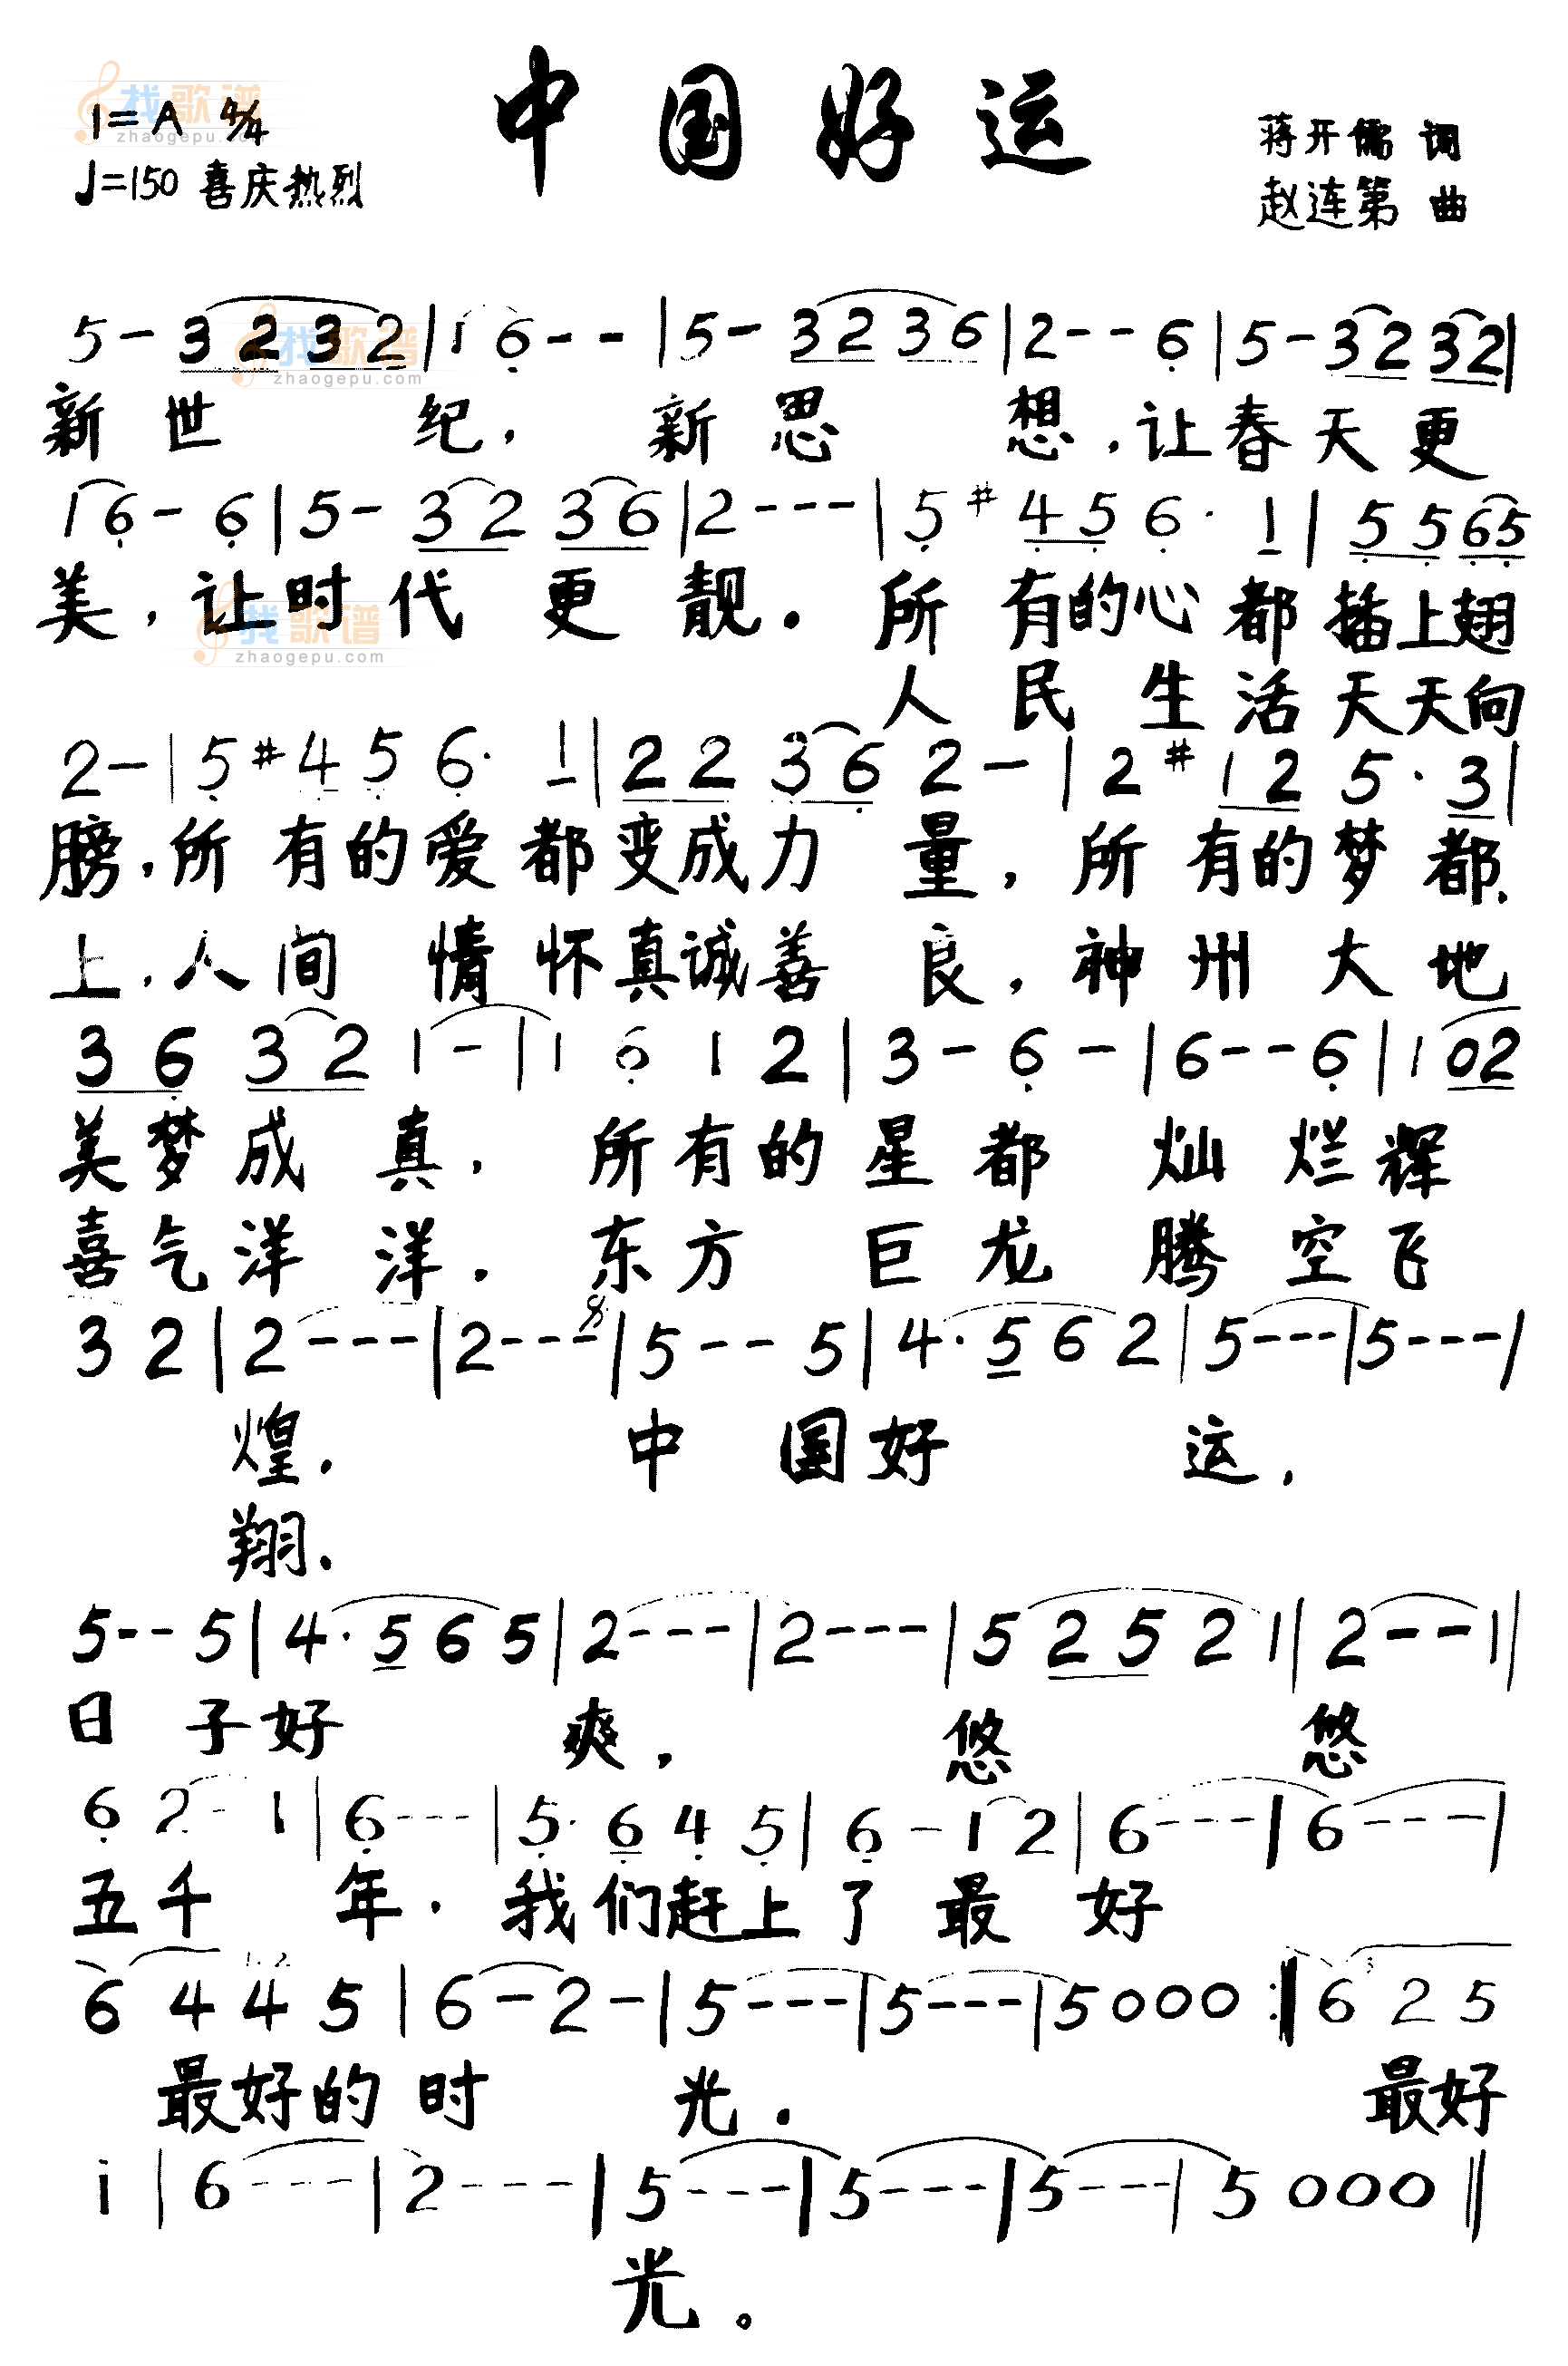 中国好运
1=A 4/4
♩=150 喜庆热烈
蒋开儒 词
赵连第 曲
找歌谱
zhaogepu.com
5 - 3 2 3 2 | 1 6 - - | 5 - 3 2 3 6 | 2 - - 6 | 5 - 3 2 3 2 |
找歌谱
zhaogepu.com
新世纪，新思想，让春天更
1 6 - 6 | 5 - 3 2 3 6 | 2 - - - | 5 #4 5 6 · 1 | 5 5 6 5
美，让时代更靓。所有的心都插上翅
找歌谱
zhaogepu.com
人民生活天天向
2 - | 5 #4 5 6 · 1 | 2 2 3 6 2 - | 2 #1 2 5 · 3 |
膀，所有的爱都变成力量，所有的梦都
上，人间情怀真诚善良，神州大地
3 6 3 2 1 - | 1 6 1 2 | 3 - 6 - | 6 - - 6 | 1 0 2
美梦成真，所有的星都灿烂辉
喜气洋洋。东方巨龙腾空飞
3 2 | 2 - - - | 2 - - - | 5 - - 5 | 4 · 5 6 2 | 5 - - - | 5 - - - |
煌。中国好运，
翔。
5 - - 5 | 4 · 5 6 5 | 2 - - - | 2 - - - | 5 2 5 2 1 | 2 - - 1 |
日子好爽，悠悠
6 2 - 1 | 6 - - - | 5 · 6 4 5 | 6 - 1 2 | 6 - - - | 6 - - - |
五千年。我们赶上了最好
6 4 4 5 | 6 - 2 - | 5 - - - | 5 - - - | 5 0 0 0 :| 6 2 5
最好的时光。最好
i | 6 - - - | 2 - - - | 5 - - - | 5 - - - | 5 - - - | 5 0 0 0 ||
光。